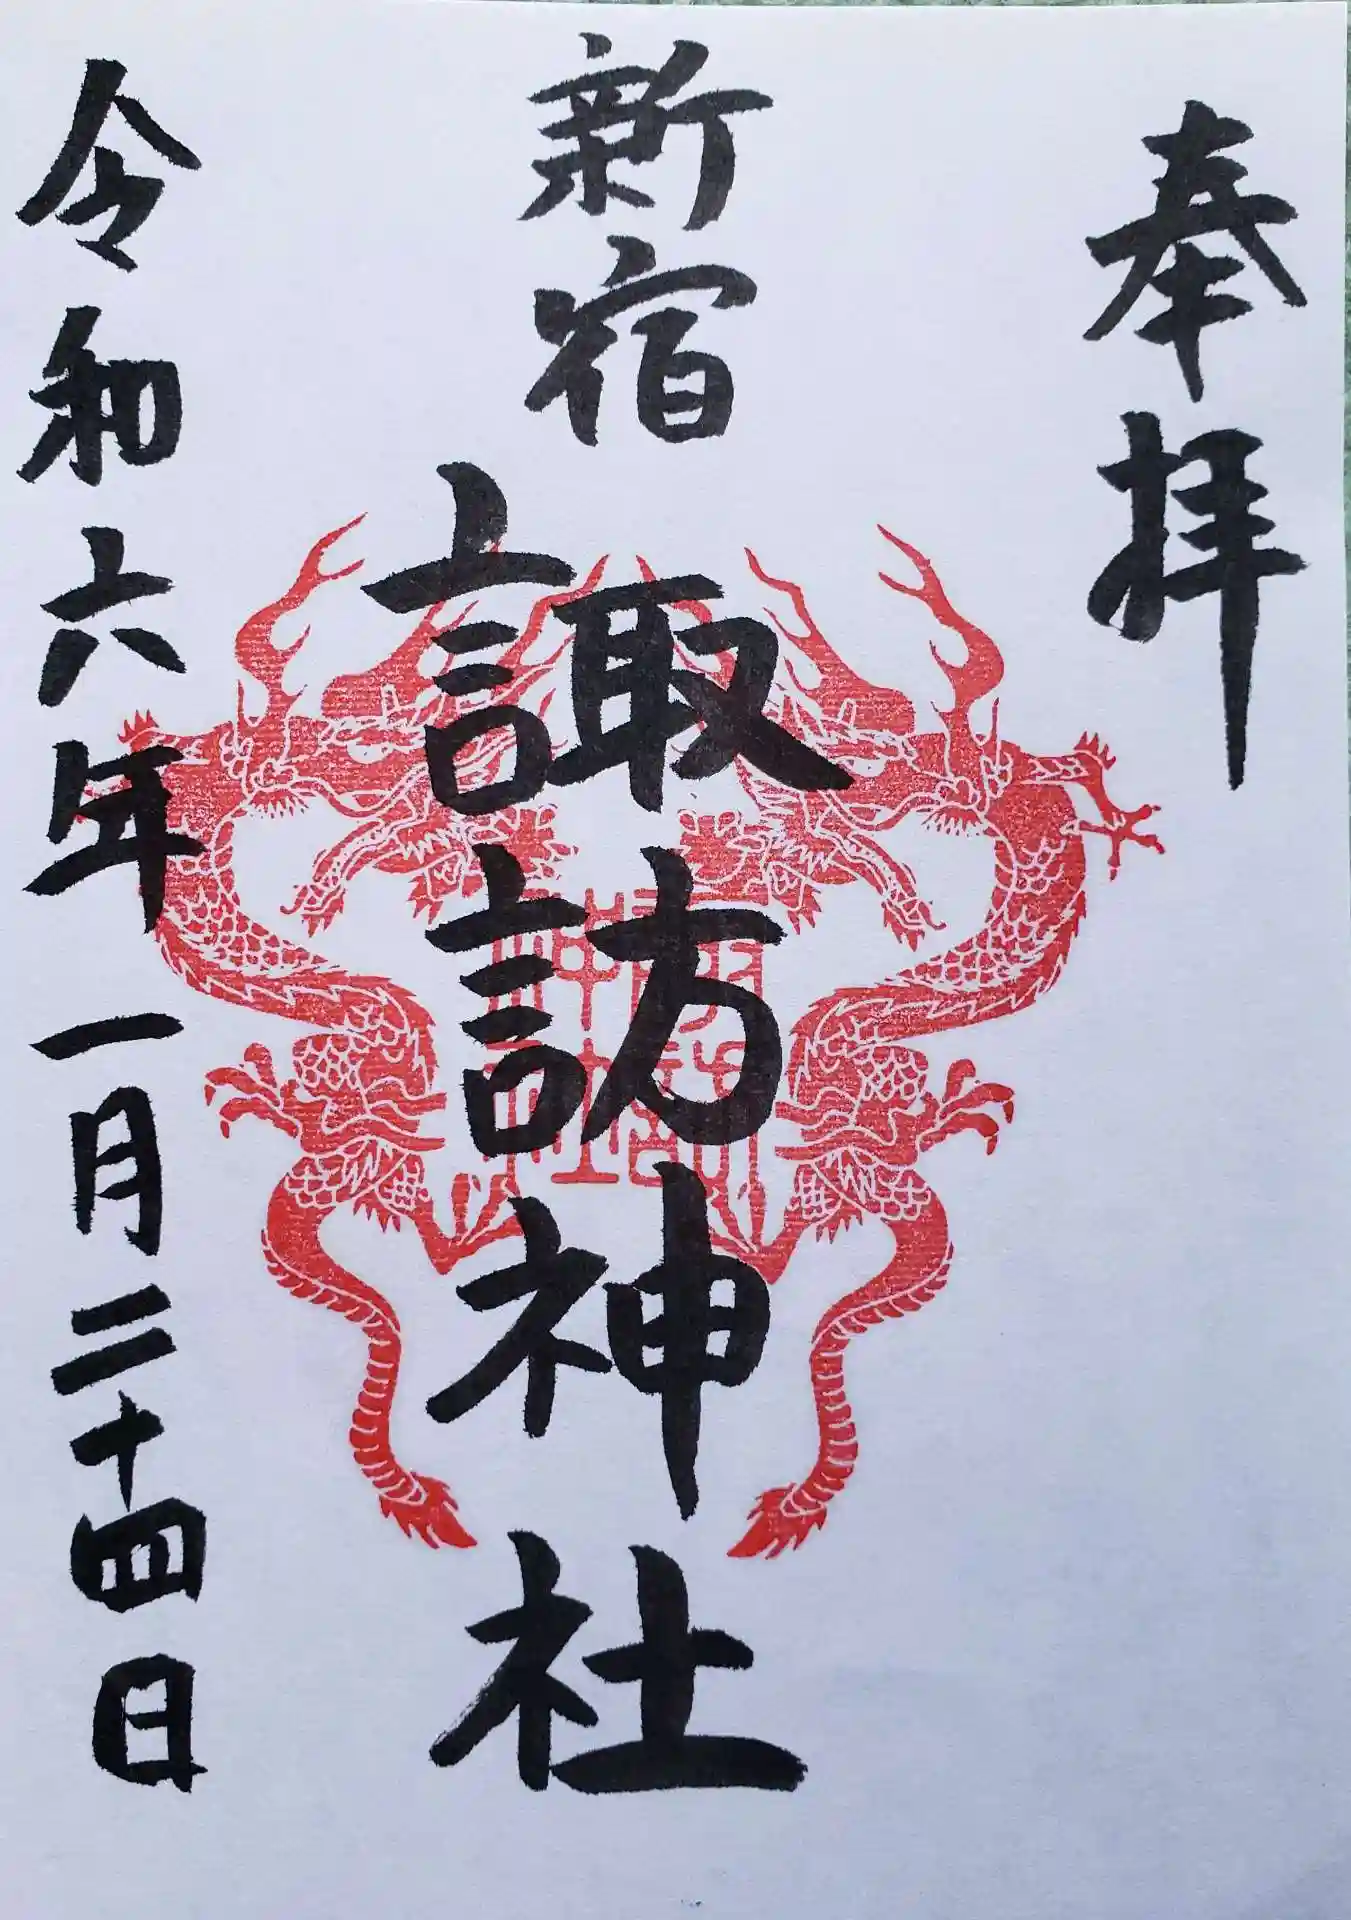 奉拝
新宿
諏訪神社
令和六年一月二十四日